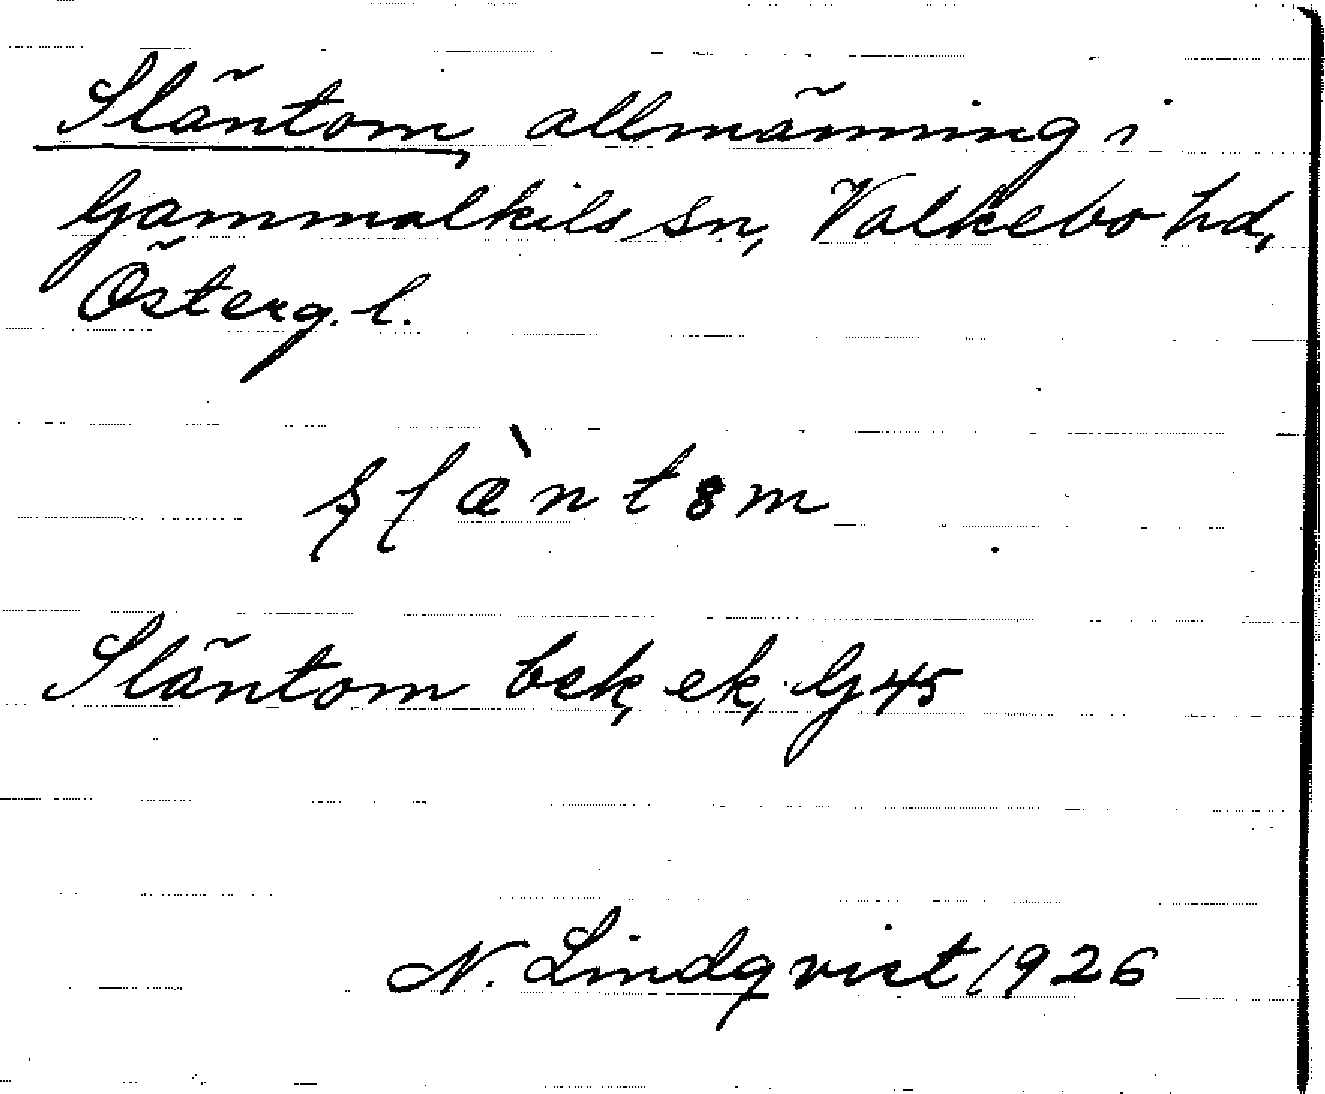 Släntom, allmänning i
Gammalkils sn, Valkebo hd,
Österg. l.
slæ̀ntɔm
Släntom bek, ek, G 45
N. Lindqvist 1926